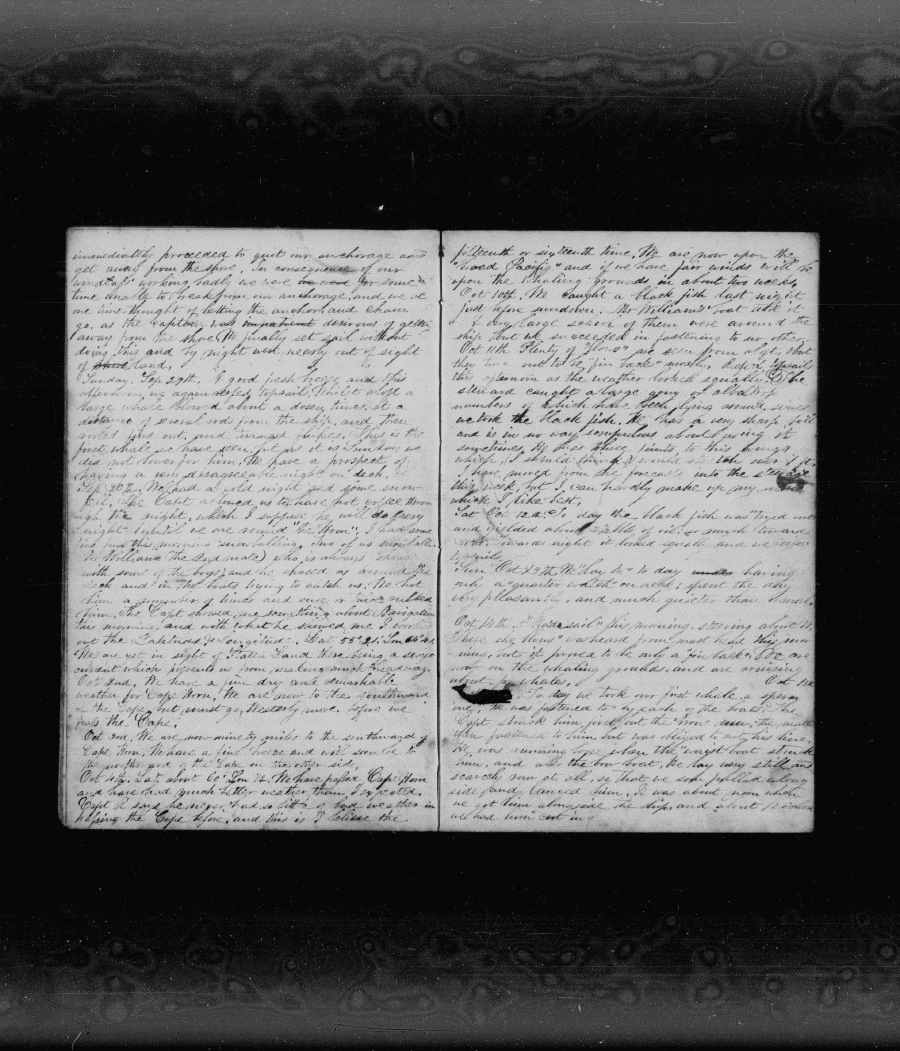 immediately proceeded to quit our anchorage and
get away from the shore. In consequence of our
windlass working badly we were for some
time unable to break from our anchorage, and we at
one time thought of letting the anchor and chain
go, as the captain was desirous of getting
away from the shore. We finally set sail without
doing this and by night were nearly out of sight
of land.
Sunday. Sep. 29th. A good fresh breeze and this
afternoon we again reefed topsails. Whilst aloft a
large whale blowed about a dozen times, at a
distance of several rods from the ship, and then
flukes. This is the
first whale we have seen, but as it is Sunday we
did not lower for him. We have a prospect of
having a very disagreeable night on deck.
Sep. 30th. We had a cold night and some snow
fell. The Capt allowed us to have hot coffee through
the night, which I suppose he will do every
night until we are round "the Horn". I had some
fun this morning snowballing.
Mr Williams (the 2nd mate) who is always
with some of the boys, and he chased us around the
deck and in the boats trying to catch us. We hit
him a number of times and once or twice
him. The Capt showed me something about Navigation
this morning, and with what he showed me I worked
out the Latitude & Longitude. Lat 55° 21. Lon 64° 41.
We are yet in sight of Staten Land there being a strong
current which prevents us from making much headway.
Oct 2nd. We have a fine day and remarkable
weather for Cape Horn. We are now to the southward
of the Cape but must go Westerly more before we
pass the Cape.
Oct 3rd. We are now ninety miles to the southward of
Cape Horn. We have a fine breeze and will soon be to
the northward of the Cape on the other side.
Oct 4th. Lat about 60° Lon 74. We have passed Cape Horn
and have had much better weather than I expected.
Capt R says he never had so little of bad weather in
passing the Cape before, and this is I believe the
fifteenth or sixteenth time. We are now upon the
"broad Pacific" and if we have fair winds will be
upon the whaling grounds in about two weeks.
Oct 10th. We caught a black fish last night
just before sundown. Mr Williams' boat took it
A very large school of them were around the
ship, but we succeeded in fastening to no other.
Oct 11th Plenty of "blows" are seen from aloft, but
they turn out to be "fin backs" mostly. Reef'd Topsails
this afternoon as the weather looked squally. The
steward caught a large gony or albatross
numbers of which have been flying around, since
we took the black fish. He has a very sharp bill
and is in no way scrupulous about using it
sometimes.
I have moved from the forecastle into the steerage
this week, but I can hardly make up my mind
which I like best.
Sat Oct 12th. To day the black fish was tried out
and yielded about lbs of oil.
Towards night it looked squally and we reefed
topsails.
Sun Oct 13th. We "lay to" to day having
only a "quarter watch" on deck; spent the day
very pleasantly, and much quieter than usual.
Oct 14th. Made sail this morning, steering about N.
"There she blows" was heard from mast head this morning,
but it proved to be only a fin back. We are
now on the whaling grounds, and are cruising
about for whales. Oct 15th
To day we took our first whale, a sperm
one. He was fastened to by each of the boats. The
Capt struck him first, but the iron drew, the mate
then fastened to him, but was obliged to cut his line.
He was running off when the waist boat struck
him, and also the bow boat. He lay very still and
scarcely run at all, so that we soon pulled along
side and lanced him. It was about noon when
we got him alongside the ship, and about
we had him "cut in."